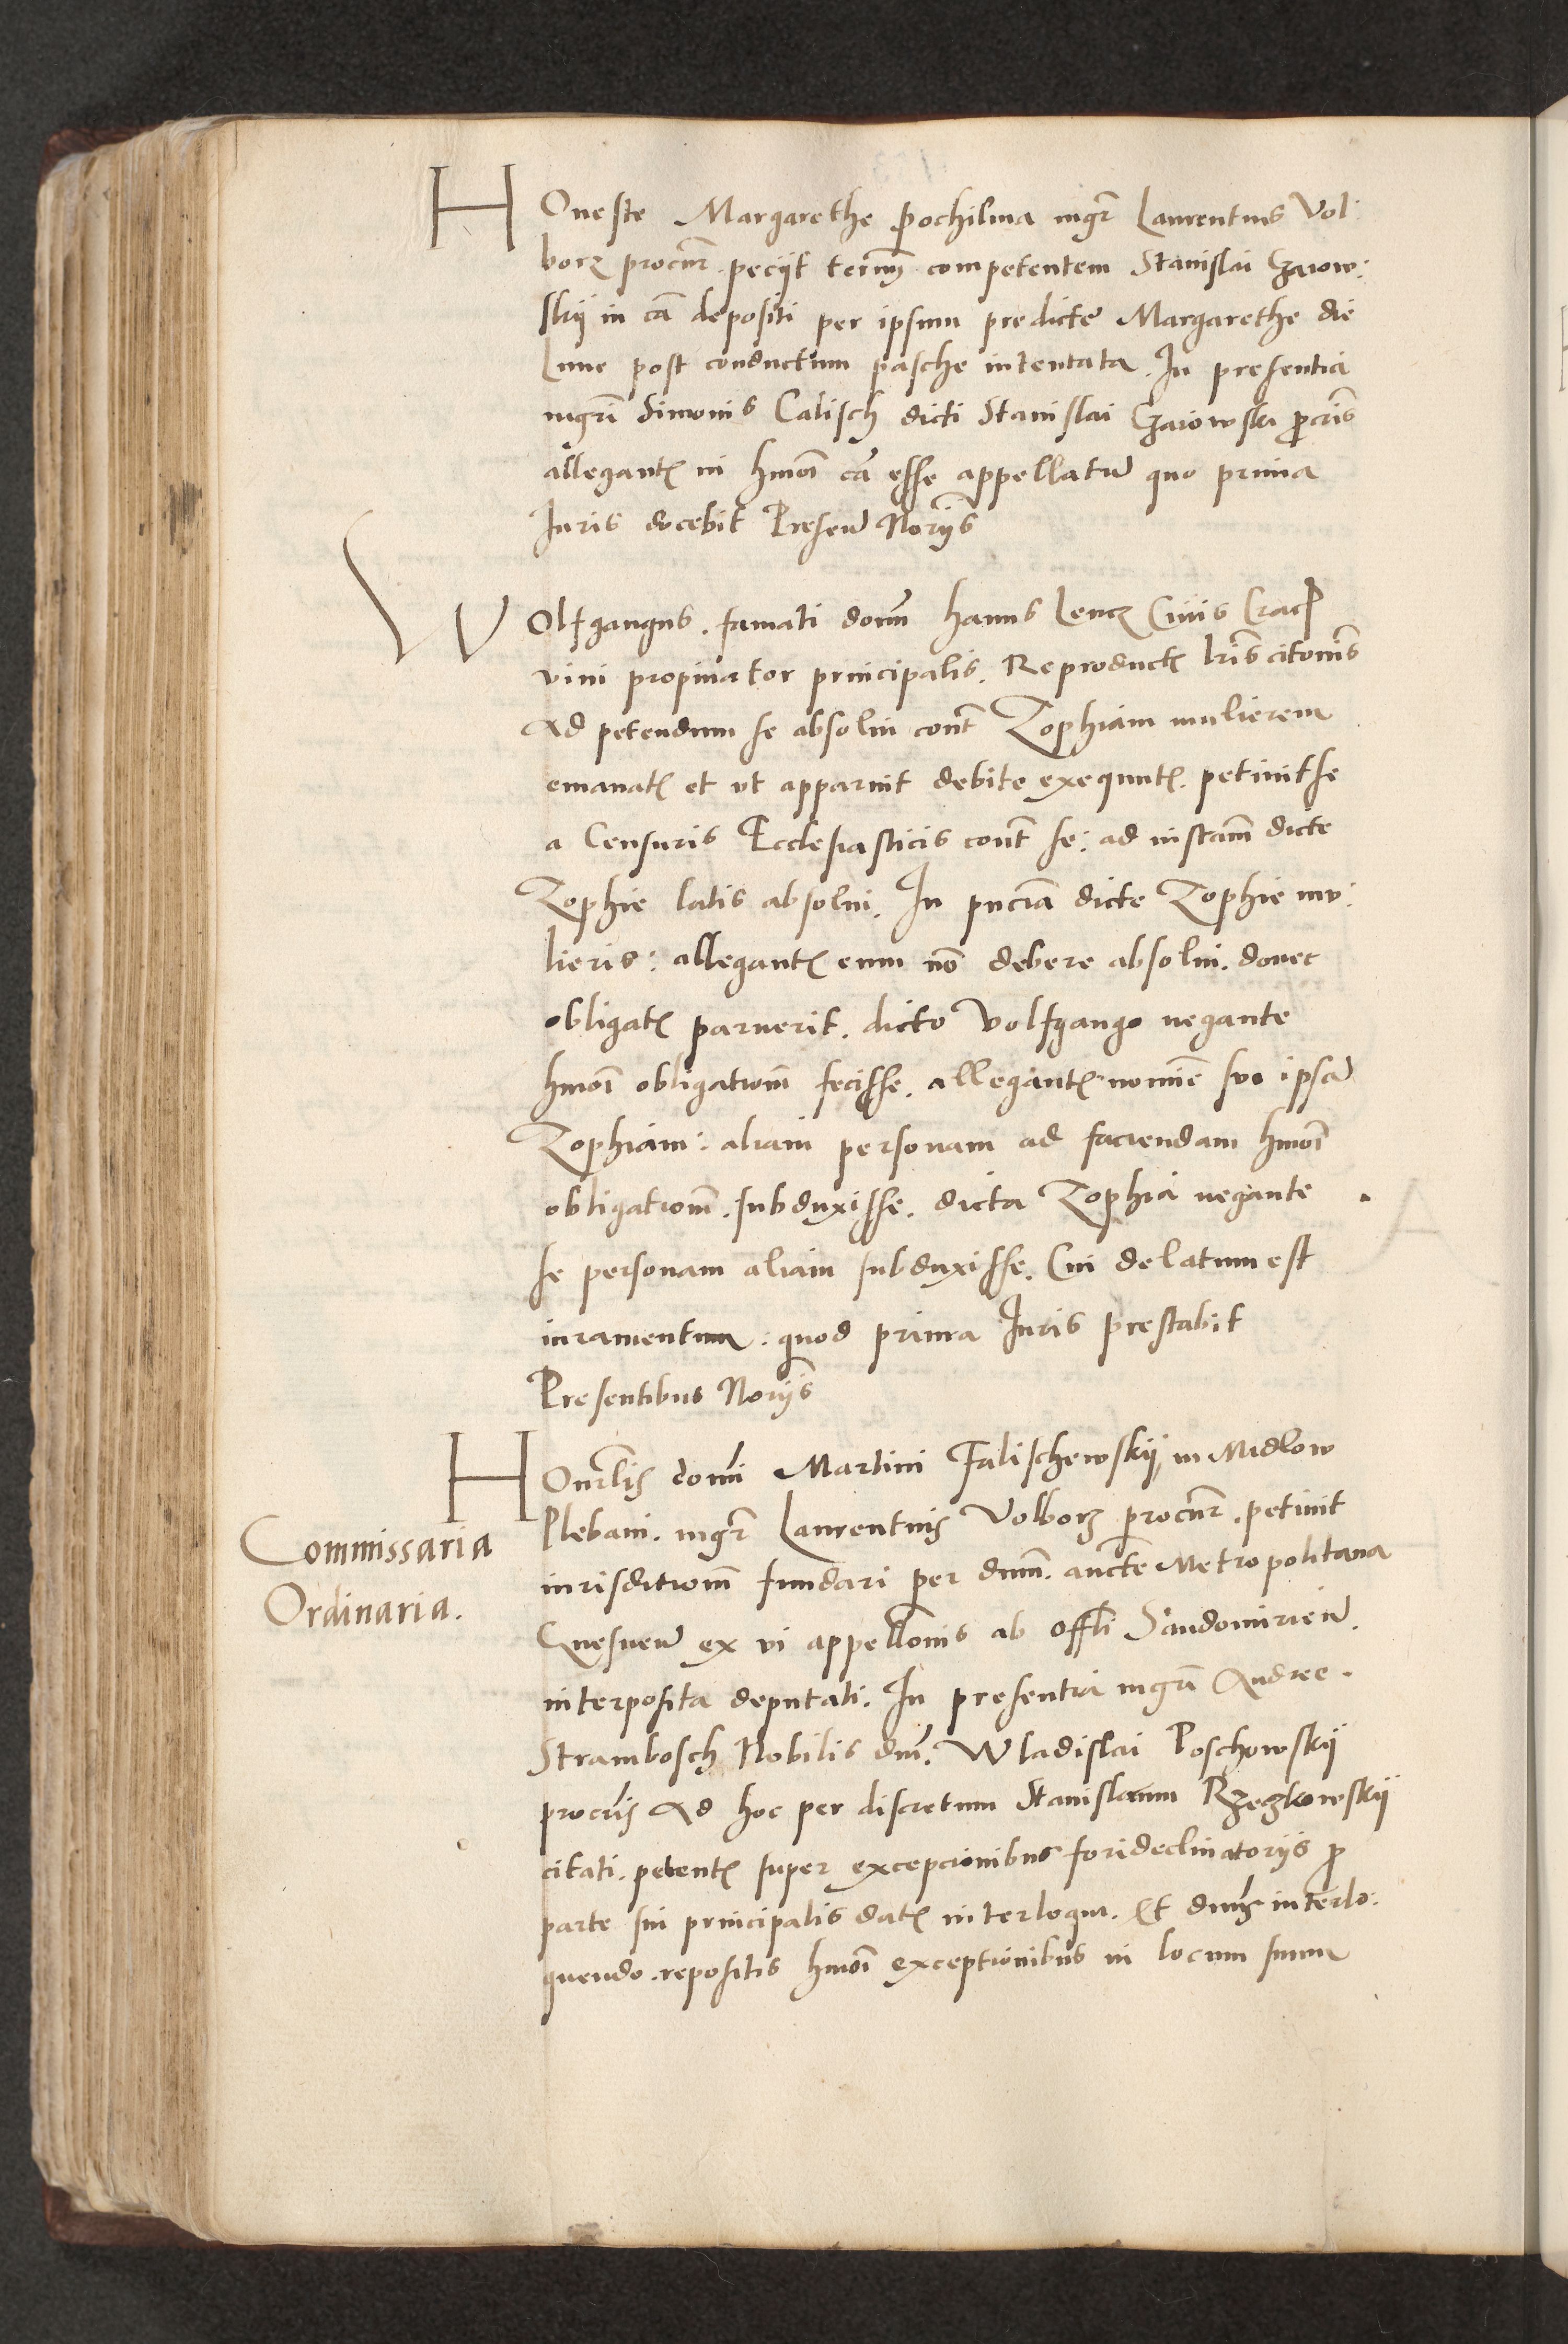 HOneste Margarethe Pochilina mgr̃ Laurentius Vol:
borz procur̃. peciit termȋ competentem Stanislai Gzaiow:
skij in cã depositi per ipsum predicte Margarethe die
Lune post conductum pasche intentata. In presentia
mgrĩ Simonis Calisch dicti Stanislai Gzaiowski procris̃
allegantȩ in hmõi cã esse appellatũ quo prima
Iuris docebit Presen̄ Norijs̃
WOlfgangus. famati domĩ Hanus Lencz Ciuis Crac̃
vini propinator principalis. Reproductȩ lris̃ citonis̃
Ad petendum se absolui cont̃ Zophiam mulierem
emanatȩ et vt apparuit debite exequutȩ. petiuit se
a Censuris Ecclesiasticis cont̃ se: ad instam̃ dicte
Zophie latis absolui. In pncĩa dicte Zophie mu:
lieris: allegantȩ eum nõ debere absolui. donec
obligatȩ paruerit. dicto Volfgango negante
hmõi obligationȩ̃ fecisse. allegantȩ nomiẽ suo ipsã
Zophiam: aliam personam ad faciendam hmõi
obligationȩ̃. subduxisse. dicta Zophia negante
se personam aliam subduxisse. Cui delatum est
iuramentum: quod prima Iuris prestabit
Presentibus Norijs̃
HOnrl̃is domĩ Martini Falischewskij, in Midlow
Plebani. mgr̃ Laurentius Volborz procur̃. petiuit
iurisditionȩ̃ fundari per dnm̃. aucte͂ Metropolitana
Gnesnen̄ ex vi appellonis̃ ab Offli͂ Sandomirien̄.
interposita deputati. In presentia mgrĩ Andree.
Strambosch Nobilis dnĩ. Wladislai Poschowskij
procris̃ Ad hoc per discretum Stanislaum Rzezkowskij
citati. petentȩ super excepcionibus forideclinatorijs p̄
parte sui principalis datȩ interloqui. Et dnus̃ interlo:
quendo. repositis hmõi exceptionibus in locum suum
Commissaria
Ordinaria.